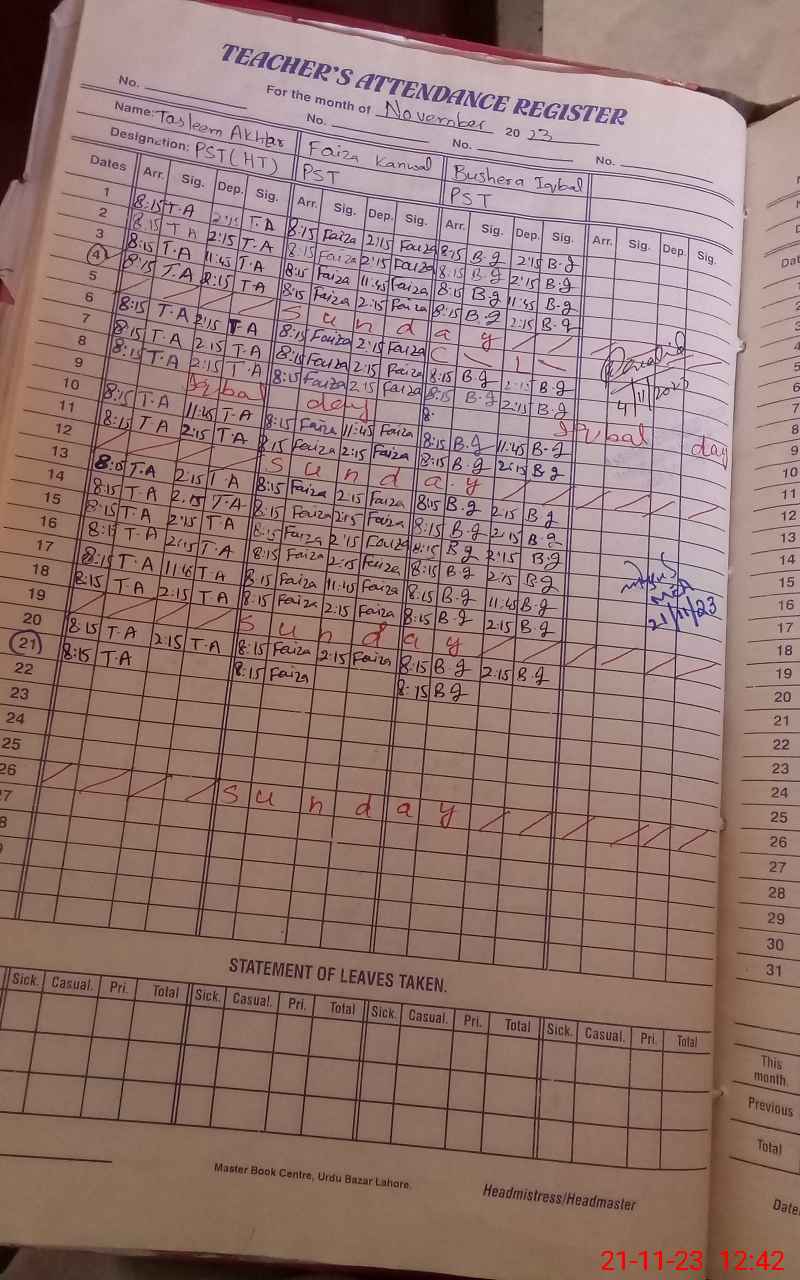 TEACHER'S ATTENDANCE REGISTER
For the month of November 2023
No. No. No. No.
Name: Tasleem Akhtar Faiza Kanwal Bushera Iqbal
Designation: PST (HT) PST PST
Dates Arr. Sig. Dep. Sig. Arr. Sig. Dep. Sig. Arr. Sig. Dep. Sig. Arr. Sig. Dep. Sig.
1 8:15 T.A 2:15 T.A 8:15 Faiza 2:15 Faiza 8:15 B.g 2:15 B.g
2 8:15 T A 2:15 T.A 8:15 Faiza 2:15 Faiza 8:15 B.g 2:15 B.g
3 8:15 T.A 11:45 T.A 8:15 Faiza 11:45 Faiza 8:15 B.g 11:45 B.g
4 8:15 T.A 2:15 T.A 8:15 Faiza 2:15 Faiza 8:15 B.g 2:15 B.g
5 Sunday
6 8:15 T.A 2:15 T.A 8:15 Faiza 2:15 Faiza C L
7 8:15 T.A 2:15 T.A 8:15 Faiza 2:15 Faiza 8:15 B.g 2:15 B.g
8 8:15 T.A 2:15 T.A 8:15 Faiza 2:15 Faiza 8:15 B.g 2:15 B.g
9 Iqbal day 8: Iqbal day
10 8:15 T.A 11:45 T.A 8:15 Faiza 11:45 Faiza 8:15 B.g 11:45 B.g
11 8:15 T A 2:15 T.A 8:15 Faiza 2:15 Faiza 8:15 B.g 2:15 B g
12 Sunday
13 8:15 T.A 2:15 T A 8:15 Faiza 2:15 Faiza 8:15 B.g 2:15 B g
14 8:15 T.A 2:15 T.A 8:15 Faiza 2:15 Faiza 8:15 B.g 2:15 B.g
15 8:15 T.A 2:15 T.A 8:15 Faiza 2:15 Faiza 8:15 B g 2:15 B.g
16 8:15 T.A 2:15 T.A 8:15 Faiza 2:15 Faiza 8:15 B.g 2:15 B.g
17 8:15 T.A 11:45 T.A 8:15 Faiza 11:45 Faiza 8:15 B.g 11:45 B.g
18 8:15 T.A 2:15 T.A 8:15 Faiza 2:15 Faiza 8:15 B.g 2:15 B.g
19 Sunday
20 8:15 T.A 2:15 T.A 8:15 Faiza 2:15 Faiza 8:15 B.g 2:15 B.g
21 8:15 T.A 8:15 Faiza 8:15 B g
22
23
24
25
26 Sunday
4/11/2023
21/11/23
STATEMENT OF LEAVES TAKEN.
Sick. Casual. Pri. Total Sick. Casual. Pri. Total Sick. Casual. Pri. Total Sick. Casual. Pri. Total
Master Book Centre, Urdu Bazar Lahore.
Headmistress/Headmaster
8
9
10
11
12
13
14
15
16
17
18
19
20
21
22
23
24
25
26
27
28
29
30
31
This month.
Previous
Total
21-11-23 12:42